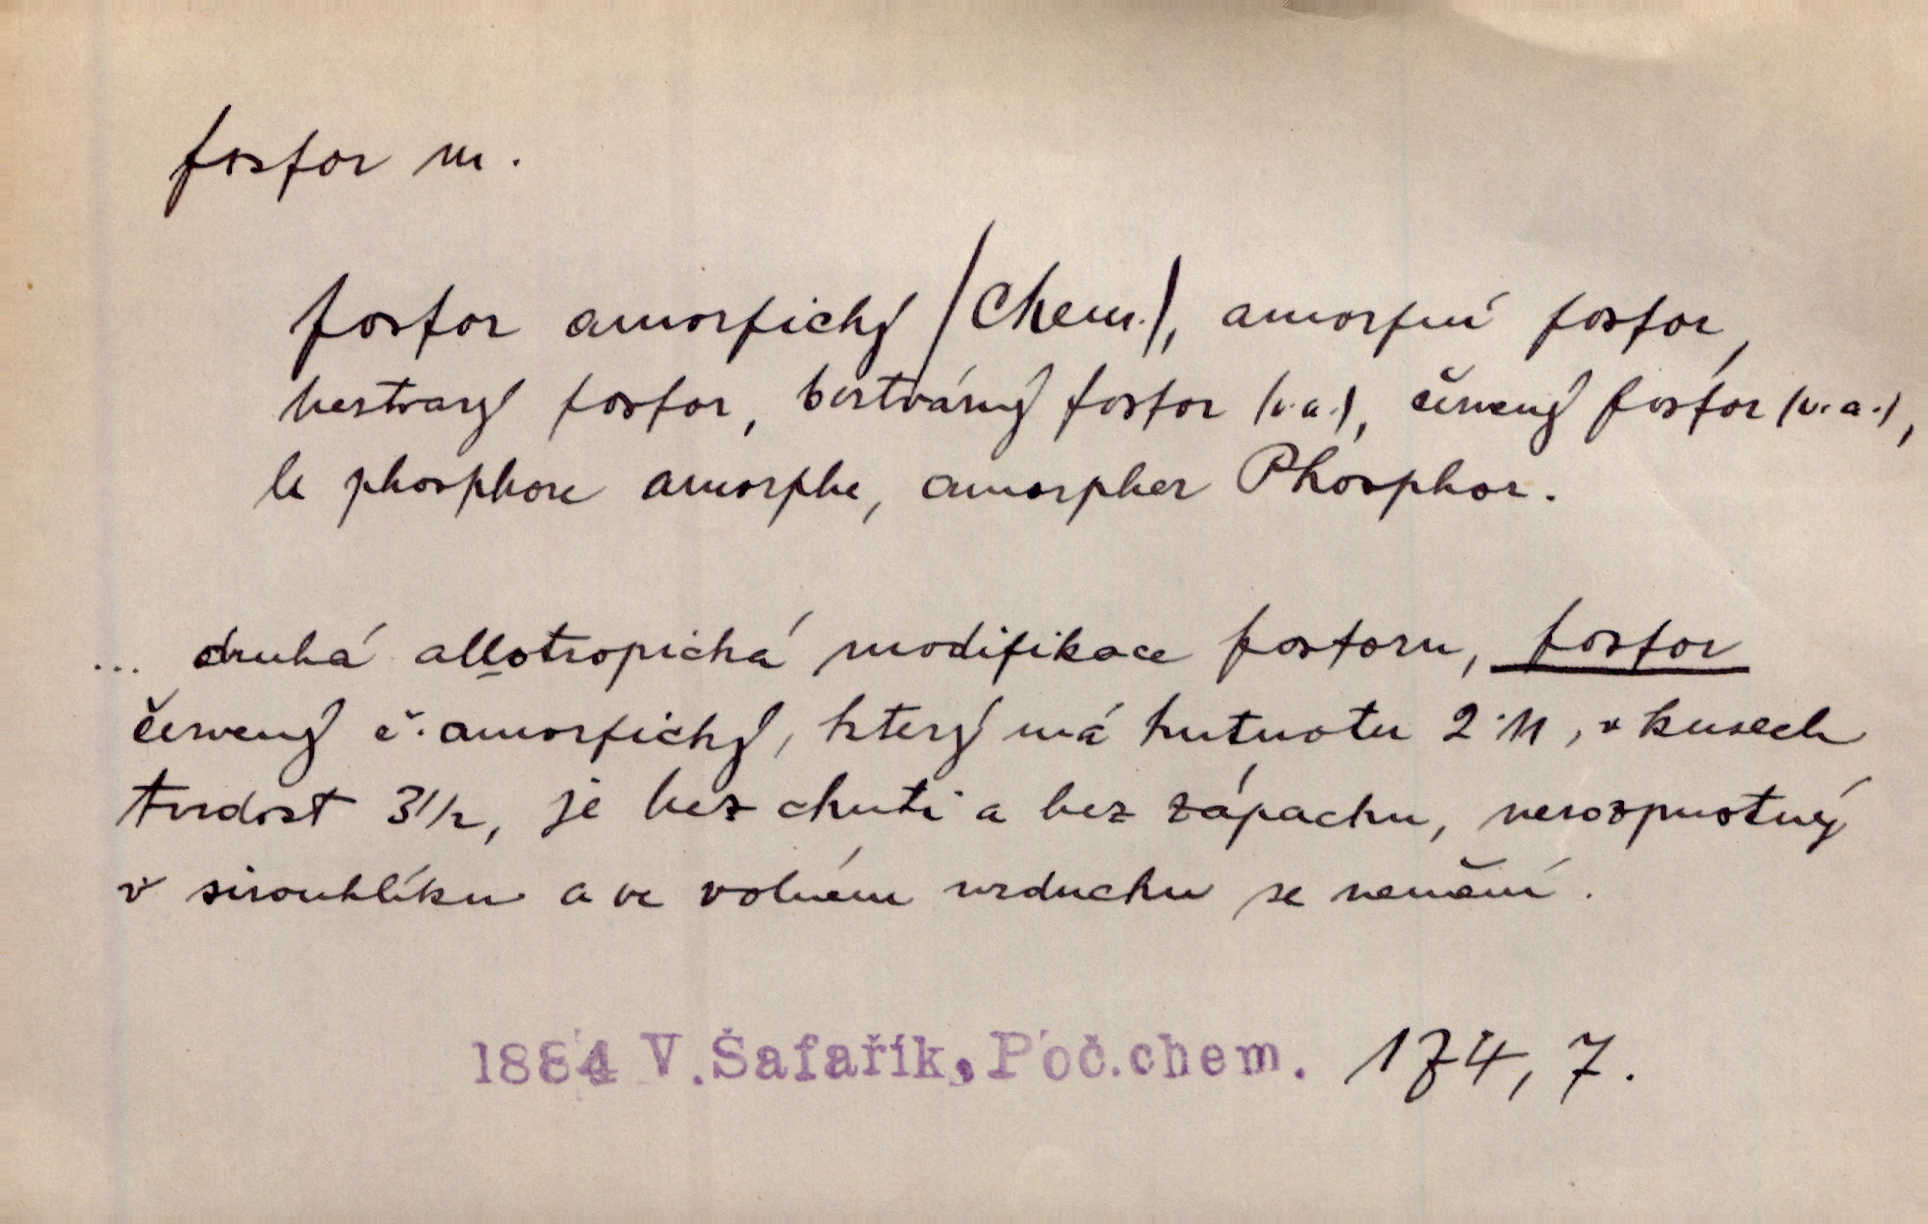 fosfor m.
fosfor amorfický (Chem.), amorfní fosfor,
beztvarý fosfor, beztvárný fosfor (v. a.), červený fosfor (v. a.),
le phosphore amorphe, amorpher Phosphor.
... druhá allotropická modifikace fosforu, fosfor
červený č. amorfický, který má hutnotu 2·11, v kusech
tvrdost 3 1/2, je bez chuti a bez zápachu, nerozpustný
v sirouhlíku a ve volném vzduchu se nemění.
1884 V. Šafařík, Poč. chem. 174, 7.